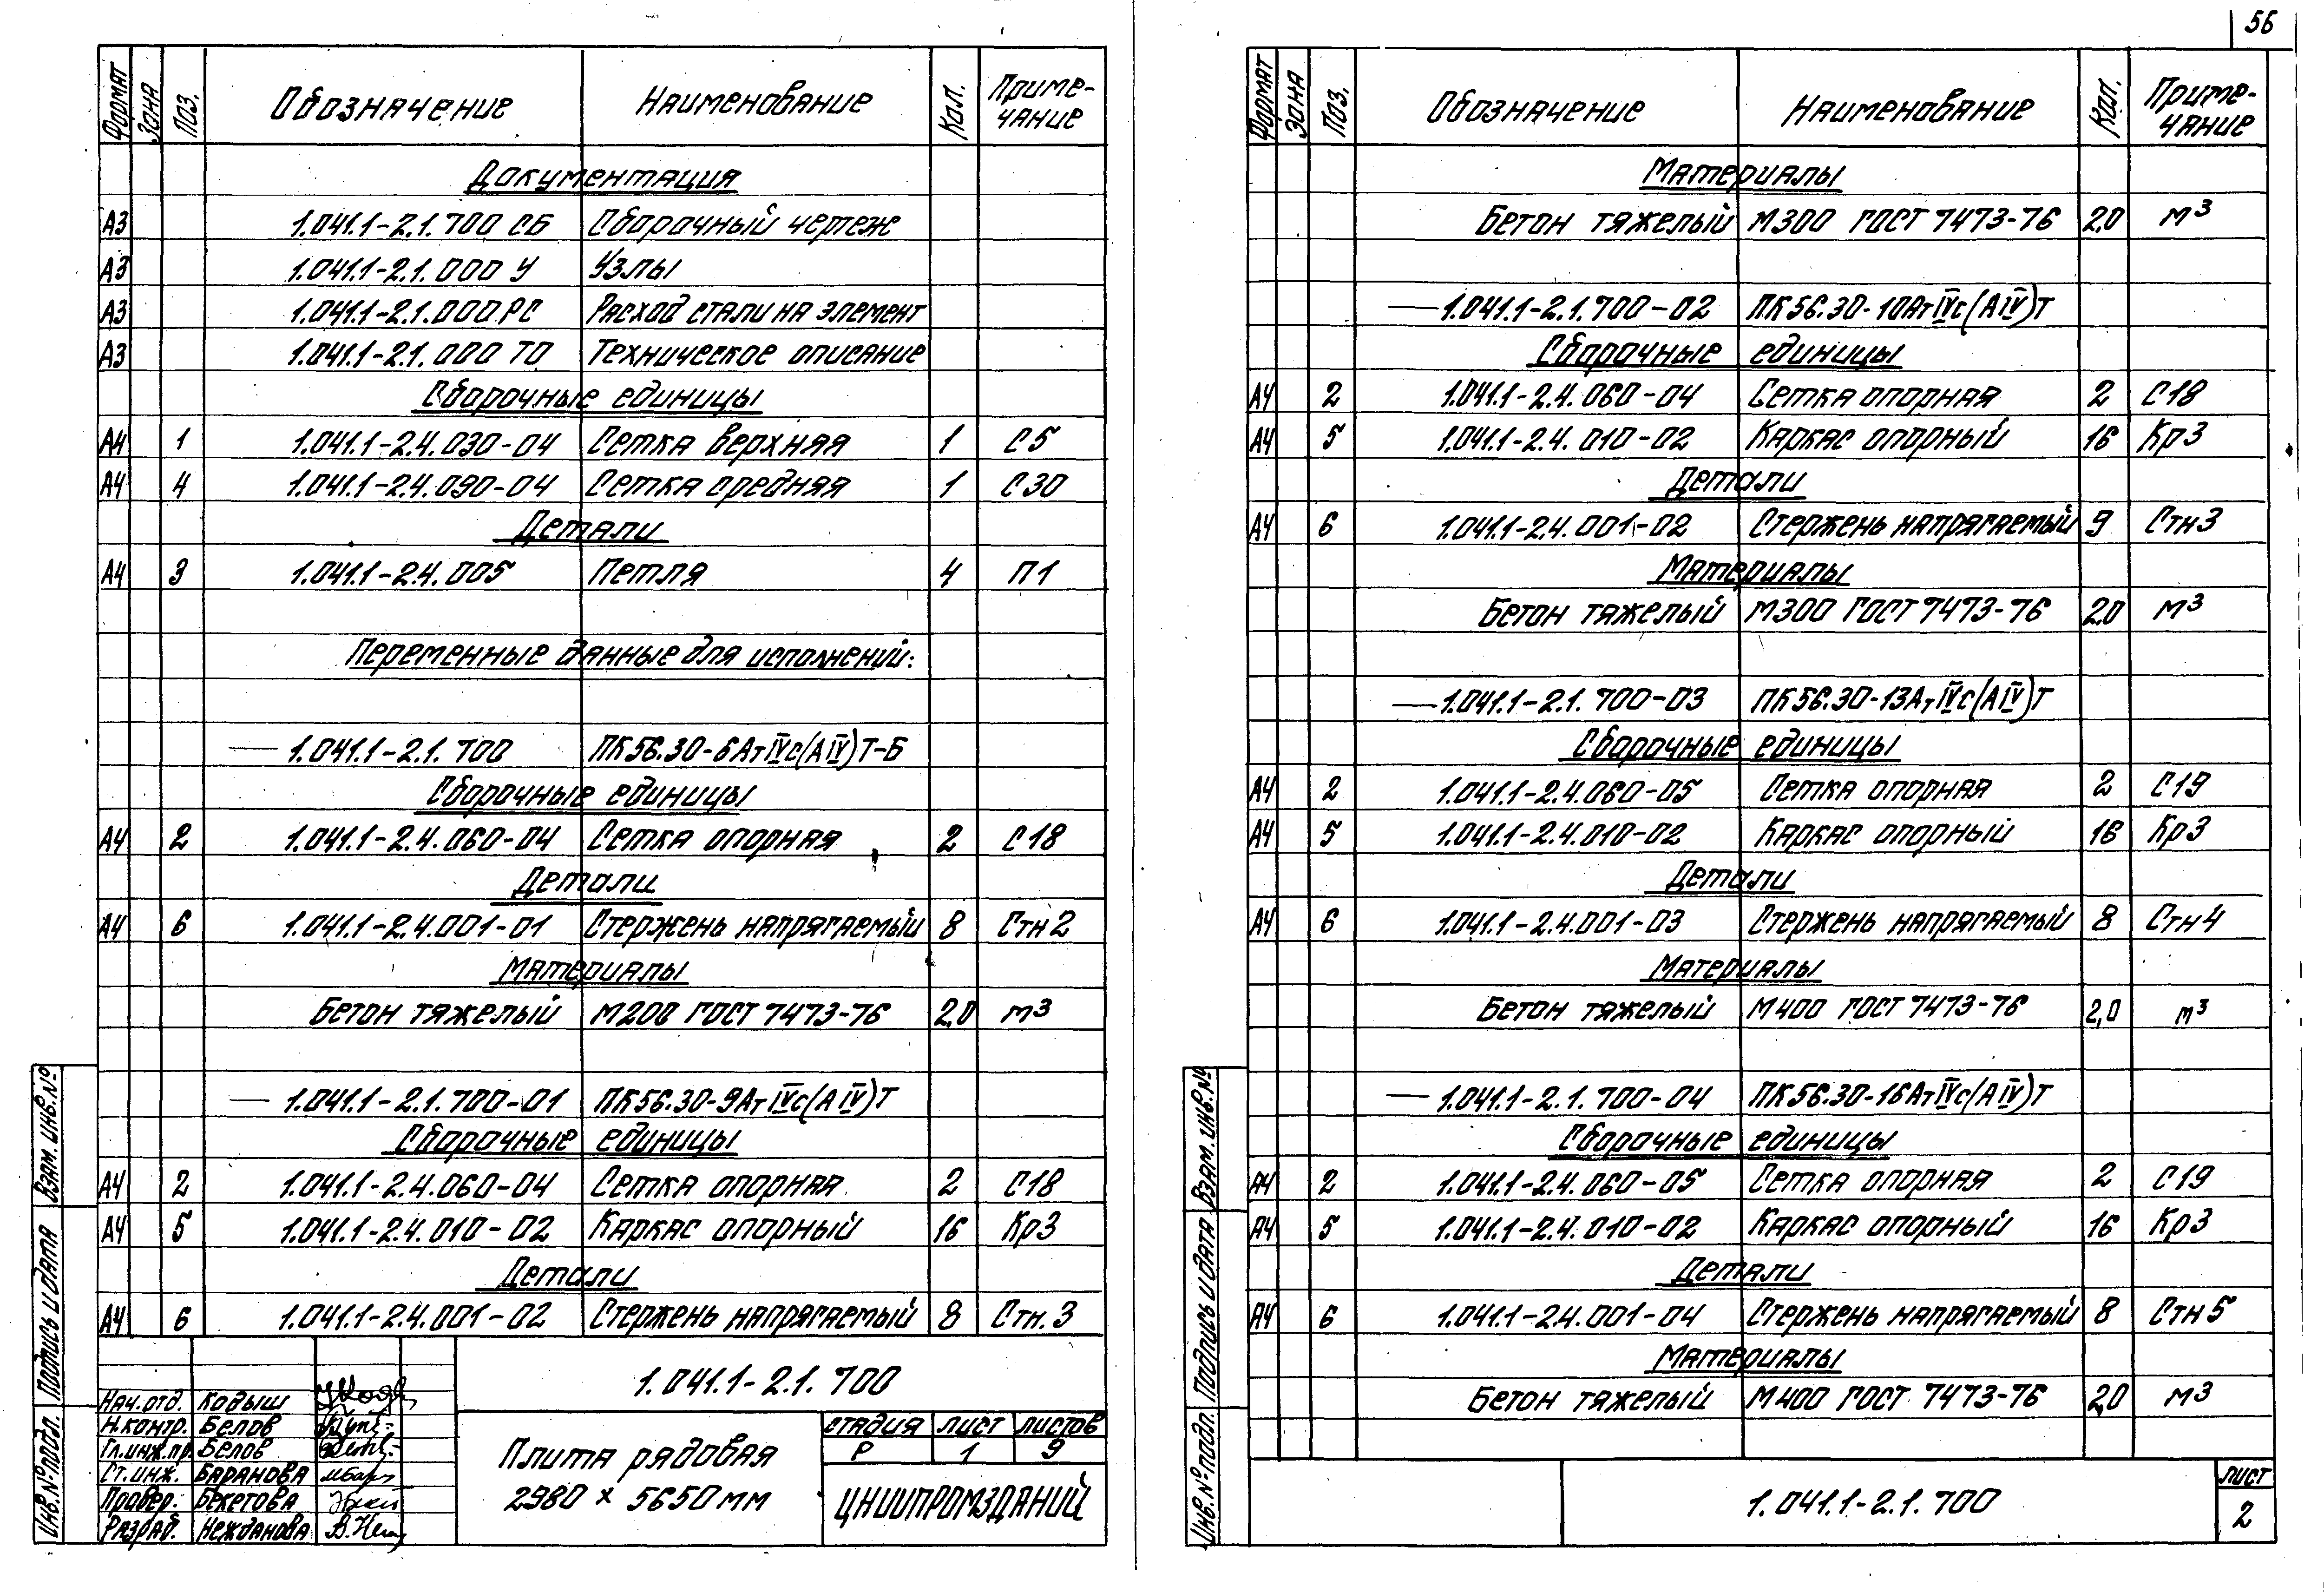 56
Формат Зона Поз. Обозначение Наименование Кол. Приме-чание
Документация
А3 1.041.1-2.1.700 СБ Сборочный чертеж
А3 1.041.1-2.1.000 У Узлы
А3 1.041.1-2.1.000 РС Расход стали на элемент
А3 1.041.1-2.1.000 ТО Техническое описание
Сборочные единицы
А4 1 1.041.1-2.4.030-04 Сетка верхняя 1 С5
А4 4 1.041.1-2.4.090-04 Сетка средняя 1 С30
Детали
А4 3 1.041.1-2.4.005 Петля 4 П1
Переменные данные для исполнений:
— 1.041.1-2.1.700 ПК56.30-6АтIVс(АIV)Т-Б
Сборочные единицы
А4 2 1.041.1-2.4.060-04 Сетка опорная 2 С18
Детали
А4 6 1.041.1-2.4.001-01 Стержень напрягаемый 8 Стн2
Материалы
Бетон тяжелый М200 ГОСТ 7473-76 2,0 м3
— 1.041.1-2.1.700-01 ПК56.30-9АтIVс(АIV)Т
Сборочные единицы
А4 2 1.041.1-2.4.060-04 Сетка опорная 2 С18
А4 5 1.041.1-2.4.010-02 Каркас опорный 16 Кр3
Детали
А4 6 1.041.1-2.4.001-02 Стержень напрягаемый 8 Стн.3
Взам. инв. №
Подпись и дата
Инв. № подл.
1.041.1-2.1.700
Нач.отд. Кодыш
Н.контр. Белов
Гл.инж.пр. Белов
Ст.инж. Баранова
Провер. Бекетова
Разраб. Нежданова
Плита рядовая
2980 х 5650 мм
стадия лист листов
Р 1 9
ЦНИИПРОМЗДАНИЙ
Формат Зона Поз. Обозначение Наименование Кол. Приме-чание
Материалы
Бетон тяжелый М300 ГОСТ 7473-76 2,0 м3
— 1.041.1-2.1.700-02 ПК56.30-10АтIVс(АIV)Т
Сборочные единицы
А4 2 1.041.1-2.4.060-04 Сетка опорная 2 С18
А4 5 1.041.1-2.4.010-02 Каркас опорный 16 Кр3
Детали
А4 6 1.041.1-2.4.001-02 Стержень напрягаемый 9 Стн3
Материалы
Бетон тяжелый М300 ГОСТ 7473-76 2,0 м3
— 1.041.1-2.1.700-03 ПК56.30-13АтIVс(АIV)Т
Сборочные единицы
А4 2 1.041.1-2.4.060-05 Сетка опорная 2 С19
А4 5 1.041.1-2.4.010-02 Каркас опорный 16 Кр3
Детали
А4 6 1.041.1-2.4.001-03 Стержень напрягаемый 8 Стн4
Материалы
Бетон тяжелый М400 ГОСТ 7473-76 2,0 м3
— 1.041.1-2.1.700-04 ПК56.30-16АтIVс(АIV)Т
Сборочные единицы
А4 2 1.041.1-2.4.060-05 Сетка опорная 2 С19
А4 5 1.041.1-2.4.010-02 Каркас опорный 16 Кр3
Детали
А4 6 1.041.1-2.4.001-04 Стержень напрягаемый 8 Стн5
Материалы
Бетон тяжелый М400 ГОСТ 7473-76 2,0 м3
Взам. инв. №
Подпись и дата
Инв. № подл.
1.041.1-2.1.700
лист
2